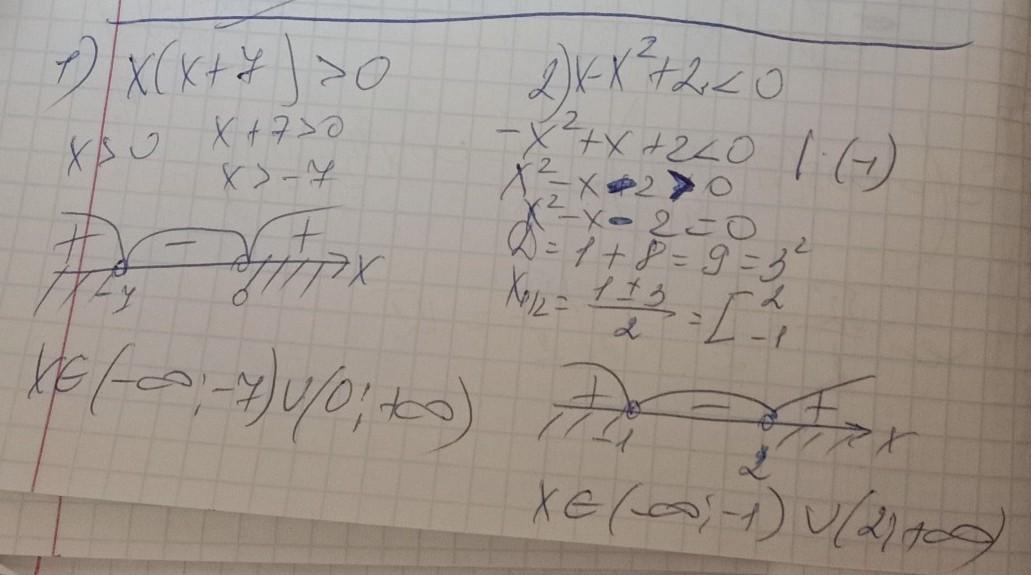 1) x(x+7)>0
x>0 x+7>0
x>-7
+ - +
-7 0 x
x∈(-∞;-7)∪(0;+∞)
2) x-x²+2<0
-x²+x+2<0 |·(-1)
x²-x-2>0
x²-x-2=0
D=1+8=9=3²
x1/2= 1±3 / 2 = [ 2 -1
+ - +
-1 2 x
x∈(-∞;-1)∪(2;+∞)